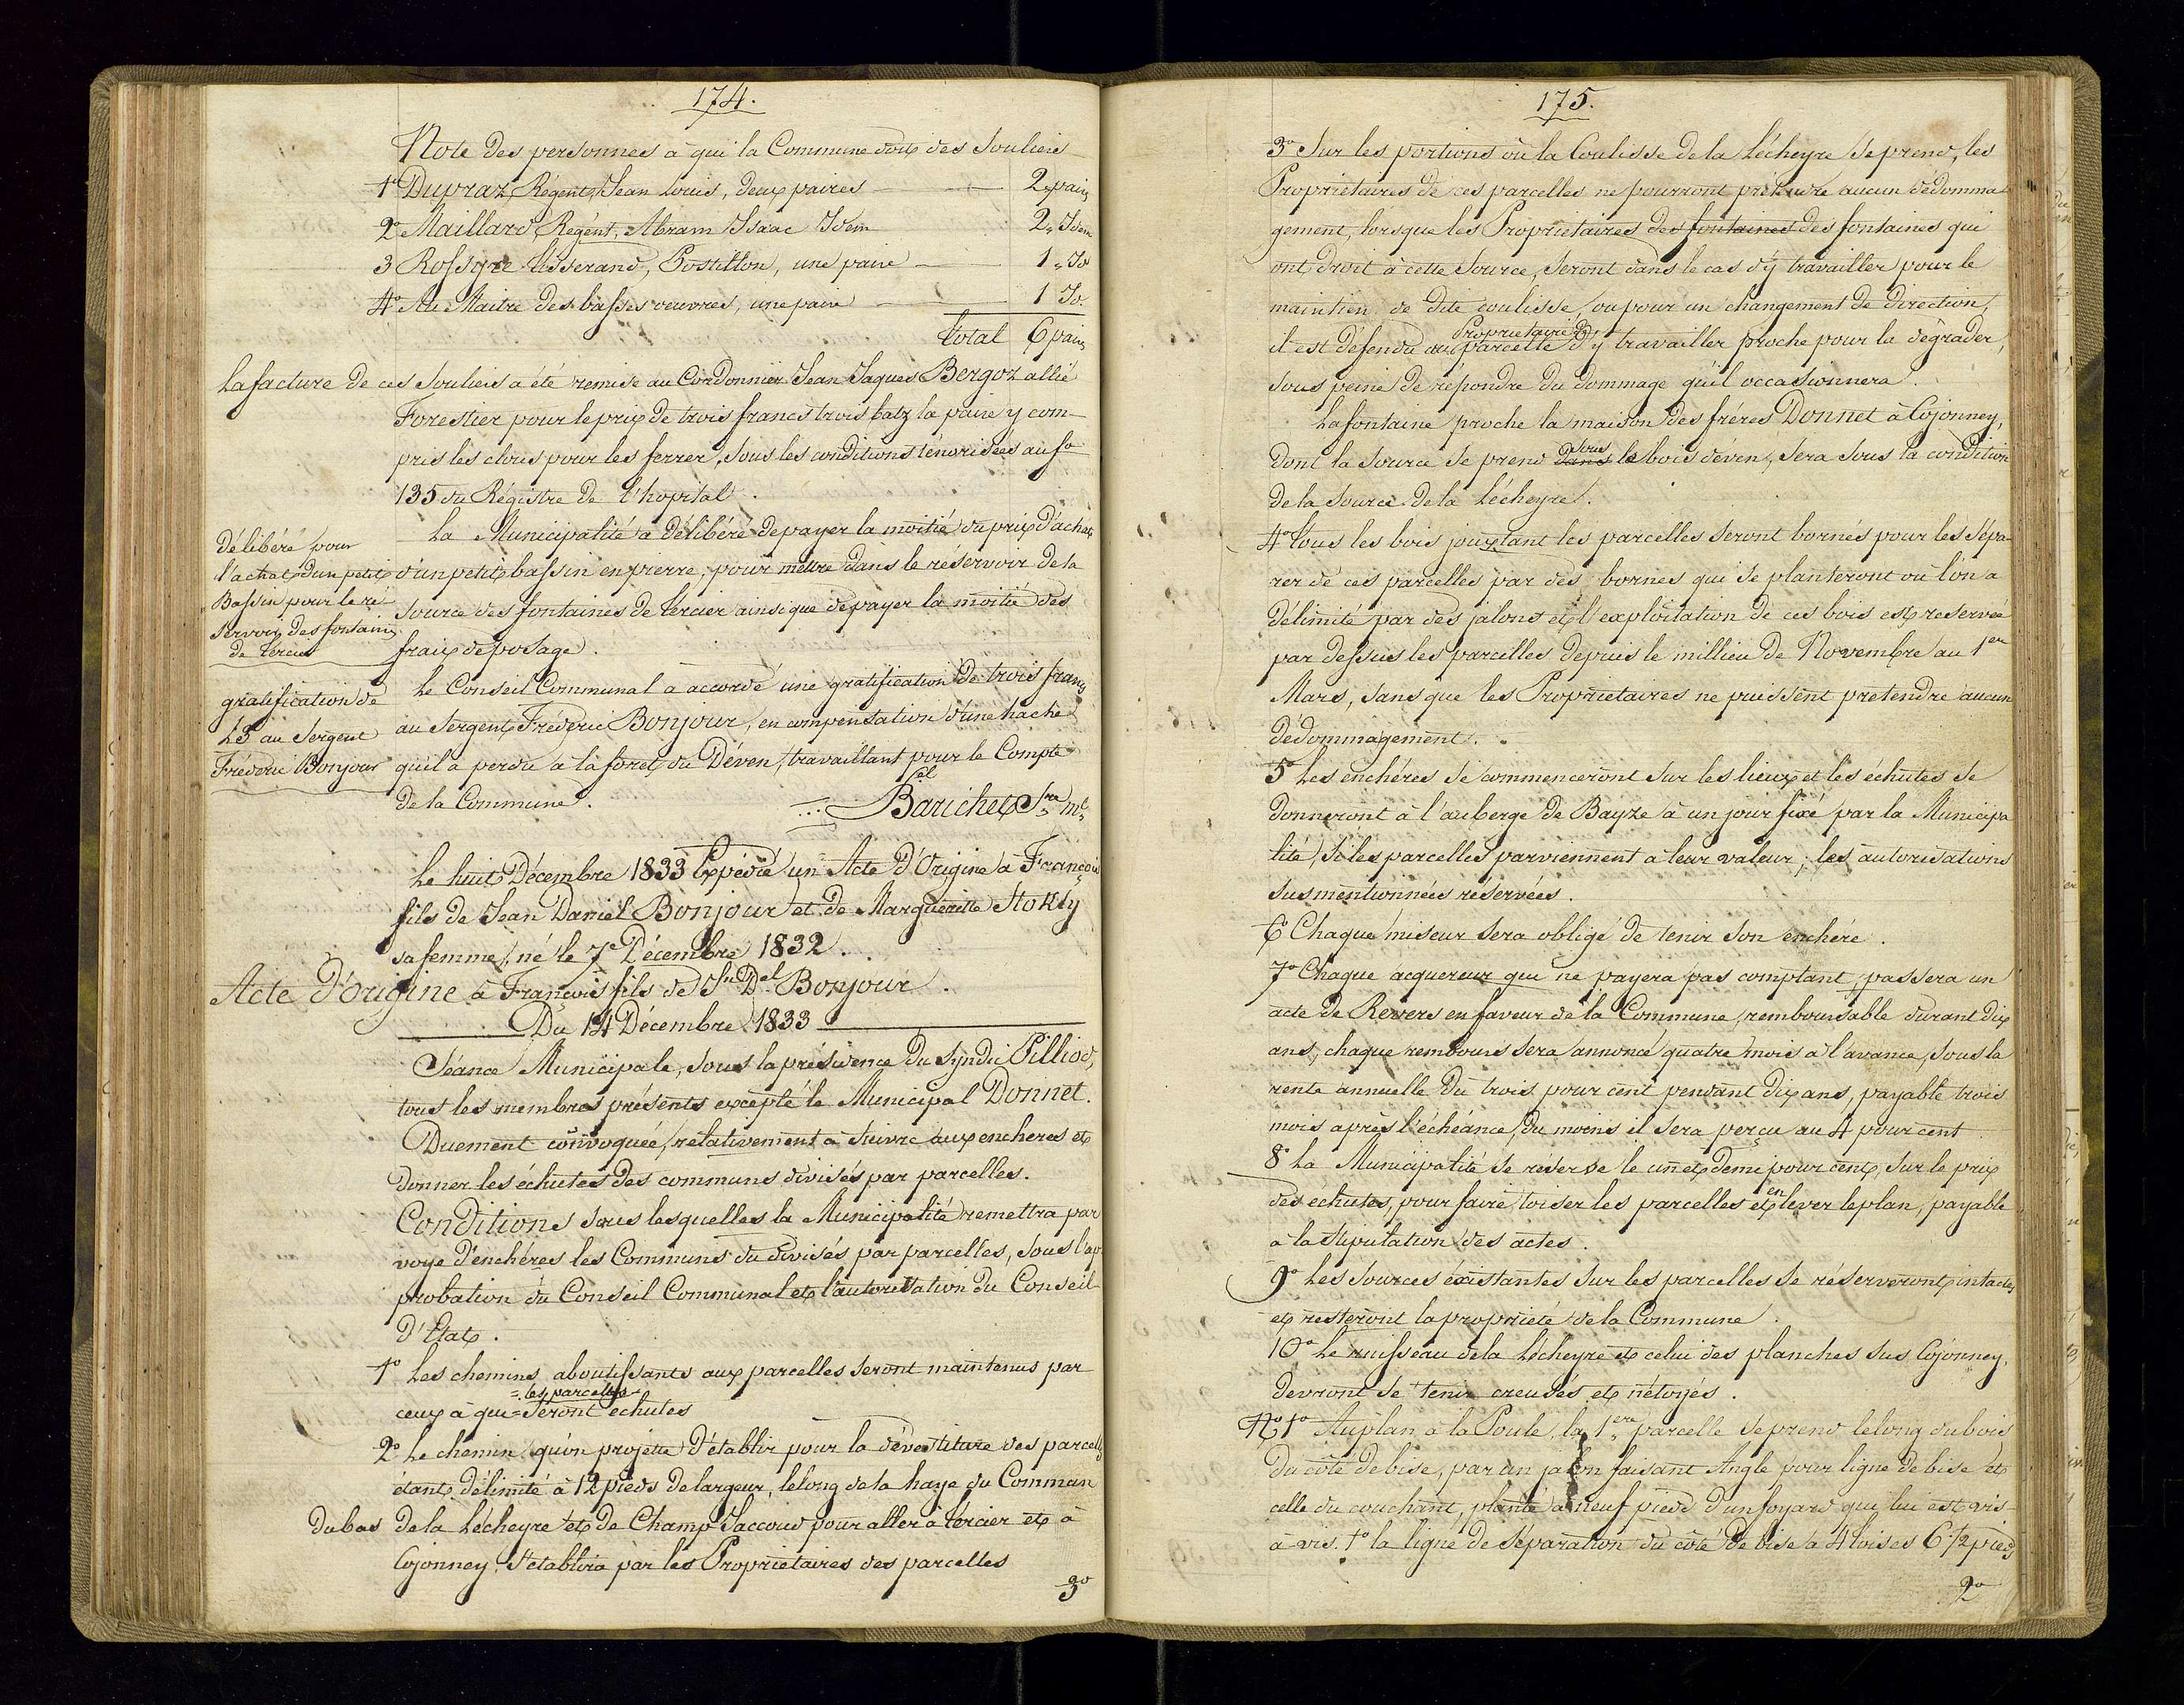 174.
Note des personnes à qui la Commune doit des Souliers
1º Dupraz, Régent, Jean Louis, deux paires 2 pairs
2º Maillard, Régent, Abram Isaac Idem 2 „ Idem
3 Rossyre Tisserand, Postillon, une paire 1 „ Id
4º Au Maitre des basses œuvres, une paire 1 Id.
Total 6 pairs
La facture de ces Souliers a été remise au Cordonnier Jean Jaques Bergoz allié
Forestier pour le prix de trois francs trois batz la paire y com-
pris les clous pour les ferrer, sous les conditions ténorisées au fº
135 du Régistre de l'hopital.
délibéré pour
l'achat d'un petit
Bassin pour le ré-
servoir des fontaines
de Tercier
La Municipalité a délibéré de payer la moitié du prix d'achat
d'un petit bassin en pierre, pour mettre dans le réservoir de la
source des fontaines de Tercier ainsi que de payer la moitié des
fraix de posage.
gratification de
L3 au Sergent
Fréderic Bonjour
Le Conseil Communal a accordé une gratification de trois francs
au Sergent Fréderic Bonjour, en compensation d'une hache
qu'il a perdu à la foret du Déven, travaillant pour le Compte
de la Commune.
Barichet Sre ml
Le huit Décembre 1833 Expédié un Acte d'Origine à François
fils de Jean Daniel Bonjour et de Marguerite Stokly
sa femme, né le 7e Décembre 1832.
Acte d'origine à François fils de Jn Del Bonjour.
Du 14 Décembre 1833
Séance Municipale, sous la présidence du Syndic Pilliod,
tous les membres présents excepté le Municipal Donnet.
Duement convoquée, relativement à suivre aux encheres et
donner les échutes des communs divisés par parcelles.
Conditions sous lesquelles la Municipalité remettra par
voye d'enchéres les Communs du divisés par parcelles, sous l'ap-
probation du Conseil Communal et l'autorisation du Conseil
d'Etat.
1º Les chemins aboutissants aux parcelles seront maintenus par
= les parcelles
ceux à qui = seront échutes
2º Le chemin qu'on projette d'établir pour la dévestiture des parcelles
étant délimité à 12 pieds de largeur, le long de la haye du Commun
du bas de la Lécheyre et de Champ Jaccoud pour aller à Tercier et à
Cojonney, s'etablira par les Propriétaires des parcelles
3º
175.
3º Sur les portions où la Coulisse de la Lécheyre se prend, les
Propriétaires de ces parcelles ne pourront prétendre aucun dédomma-
gement, lorsque les Propriétaires des fontaines des fontaines qui
ont droit à cette Source, seront dans le cas d'y travailler pour le
maintien de dite coulisse, ou pour un changement de direction,
Proprietaire
il est défendu au parcelle d'y travailler proche pour la dégrader,
sous peine de répondre du dommage qu'il occasionnera.
La fontaine proche la maison des fréres Donnet à Cojonney,
sous
dont la source se prend dans le bois déven, sera sous la condition
de la source de la Lécheyre.
4º Tous les bois jouxtant les parcelles seront bornés pour les sépa-
rer de ces parcelles par des bornes qui se planteront où l'on a
délimité par des jalons et l'exploitation de ces bois est reservée
par dessus les parcelles depuis le millieu de Novembre au 1er
Mars, sans que les Proprietaires ne puissent prétendre aucun
dédommagement.
5º Les enchéres se commenceront sur les lieux et les échutes se
donneront à l'auberge de Bayze à un jour fixé par la Municipa-
lité, si les parcelles parviennent à leur valeur, les autorisations
susmentionnées réservées.
6º Chaque miseur sera obligé de tenir son enchére.
7º Chaque acquereur qui ne payera pas comptant, passera un
acte de Revers en faveur de la Commune, remboursable durant dix
ans, chaque rembours sera annoncé quatre mois à l'avance, sous la
rente annuelle du trois pour cent pendant dix ans, payable trois
mois après l'échéance, du moins il sera perçu au 4 pour cent
8º La Municipalité se réserve le un et demi pour cent, sur le prix
en
des echutes, pour faire toiser les parcelles et lever le plan, payable
à la stipulation des actes.
9º Les Sources éxistantes sur les parcelles se réserveront intactes
et resteront la propriété de la Commune.
10º Le ruisseau de la Lécheyre et celui des planches sus Cojonney,
devront se tenir creusés et nétoyés.
Nº 1º Au plan à la Poule, la 1ere parcelle se prend le long du bois
du côté de bise, par un jalon faisant Angle pour ligne de bise et
celle du couchant, planté à neuf pieds d'un foyard qui lui est vis
à vis. 1º la ligne de séparation du côté de bise a 4 toises 6 1/2 pieds
2º